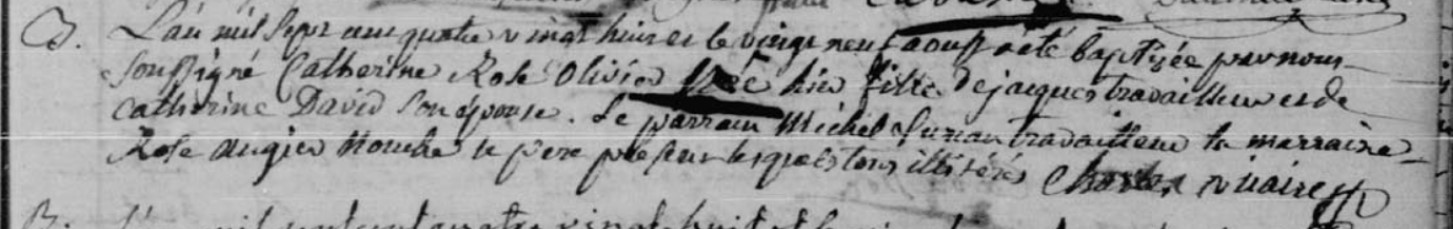 B. L'an mil sept cent quatre vingt huit et le vingt neuf aoust a été baptisée par nous
soussigné Catherine Rose Olivier née hier fille de jacques travailleur et de
Catherine David son épouse. Le parrain Michel travailleur la marraine
Rose augier le pere présent lesquels tous illitérés vicaire
B. L'an mil sept cent quatre vingt huit et le